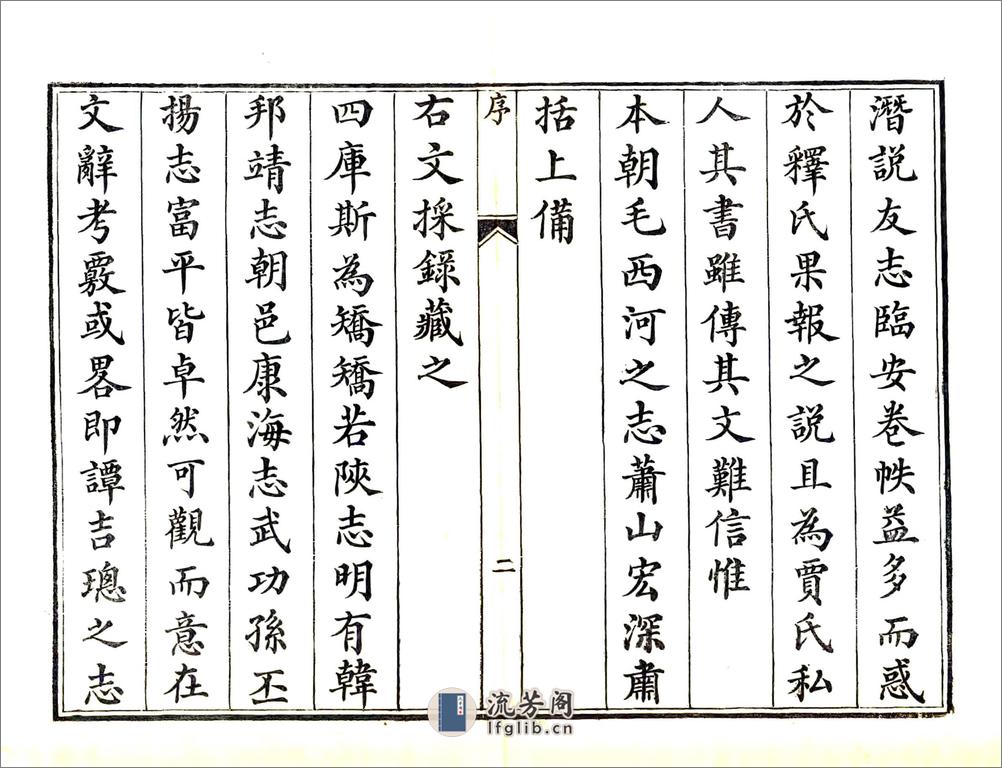 潛說友志臨安卷帙益多而惑
於釋氏果報之說且為賈氏私
人其書雖傳其文難信惟
本朝毛西河之志蕭山宏深肅
括上備
序
二
右文採錄藏之
四庫斯為矯矯若陝志明有韓
邦靖志朝邑康海志武功孫丕
揚志富平皆卓然可觀而意在
文辭考覈或畧即譚吉璁之志
流芳阁
lfglib.cn